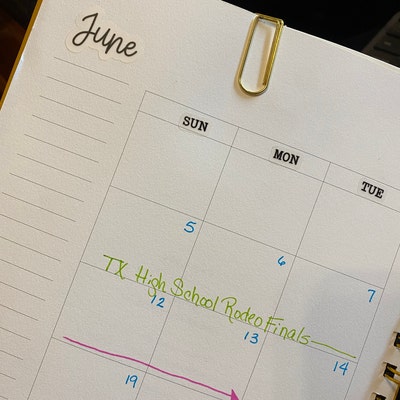 June
SUN MON TUE
5 6 7
TX High School Rodeo Finals
12 13 14
19